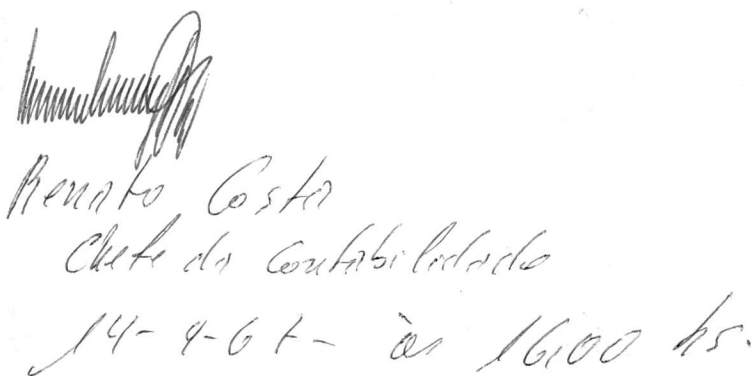 Renato Costa
Chefe da Contabilidade
14-4-67- às 16,00 hs.